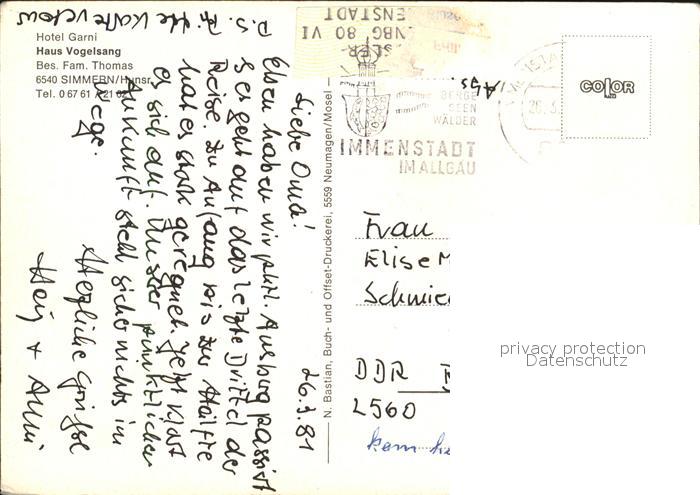 Hotel Garni
Haus Vogelsang
Bes. Fam. Thomas
6540 SIMMERN/Hunsr.
Tel. 0 67 61 / 21 62
P.S. Karte
26.3.81
Liebe Oma!
Eben haben wir Ausburg passirt
es geht auf das letzte Drittel der
Reise. Zu Anfang bis zur Hälfte
hat es stark geregnet. Jetzt klart
es sich auf. Unster pünktlichen
Ankunft steht sicher nichts im
Wege.
Herzliche Grüsse
Heinz + Anni
N. Bastian, Buch- und Offset-Druckerei, 5559 Neumagen/Mosel
ENSTADT
NBG 80 VI
BERGE
SEEN
WÄLDER
IMMENSTADT
IM ALLGÄU
COLOR
Frau
Elise M
Schmie
DDR
2560
privacy protection
Datenschutz